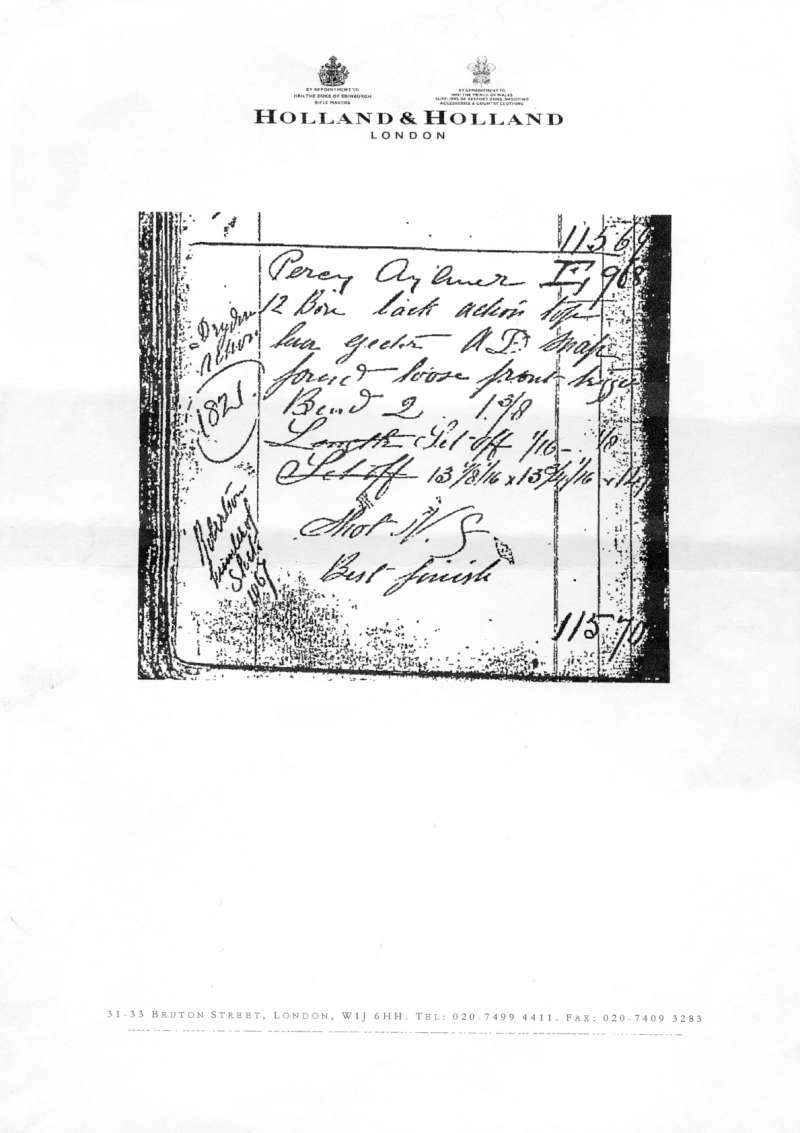 BY APPOINTMENT TO
HRH THE DUKE OF EDINBURGH
RIFLE MAKERS
BY APPOINTMENT TO
HRH THE PRINCE OF WALES
SUPPLIERS OF SPORTING GUNS, SHOOTING
ACCESSORIES & COUNTRY CLOTHING
HOLLAND & HOLLAND
LONDON
11569
Percy Aylmer 968
12 Bore back action top
lever ejector snap
loose front trigger
Bend 2 1 3/8
Length Set off 1/16 - 1/8
Set off
Shot
Best finish
11570
Dryden
Action
1821.
Robertson
1067
31-33 BRUTON STREET, LONDON, W1J 6HH. TEL: 020-7499 4411. FAX: 020-7409 3283